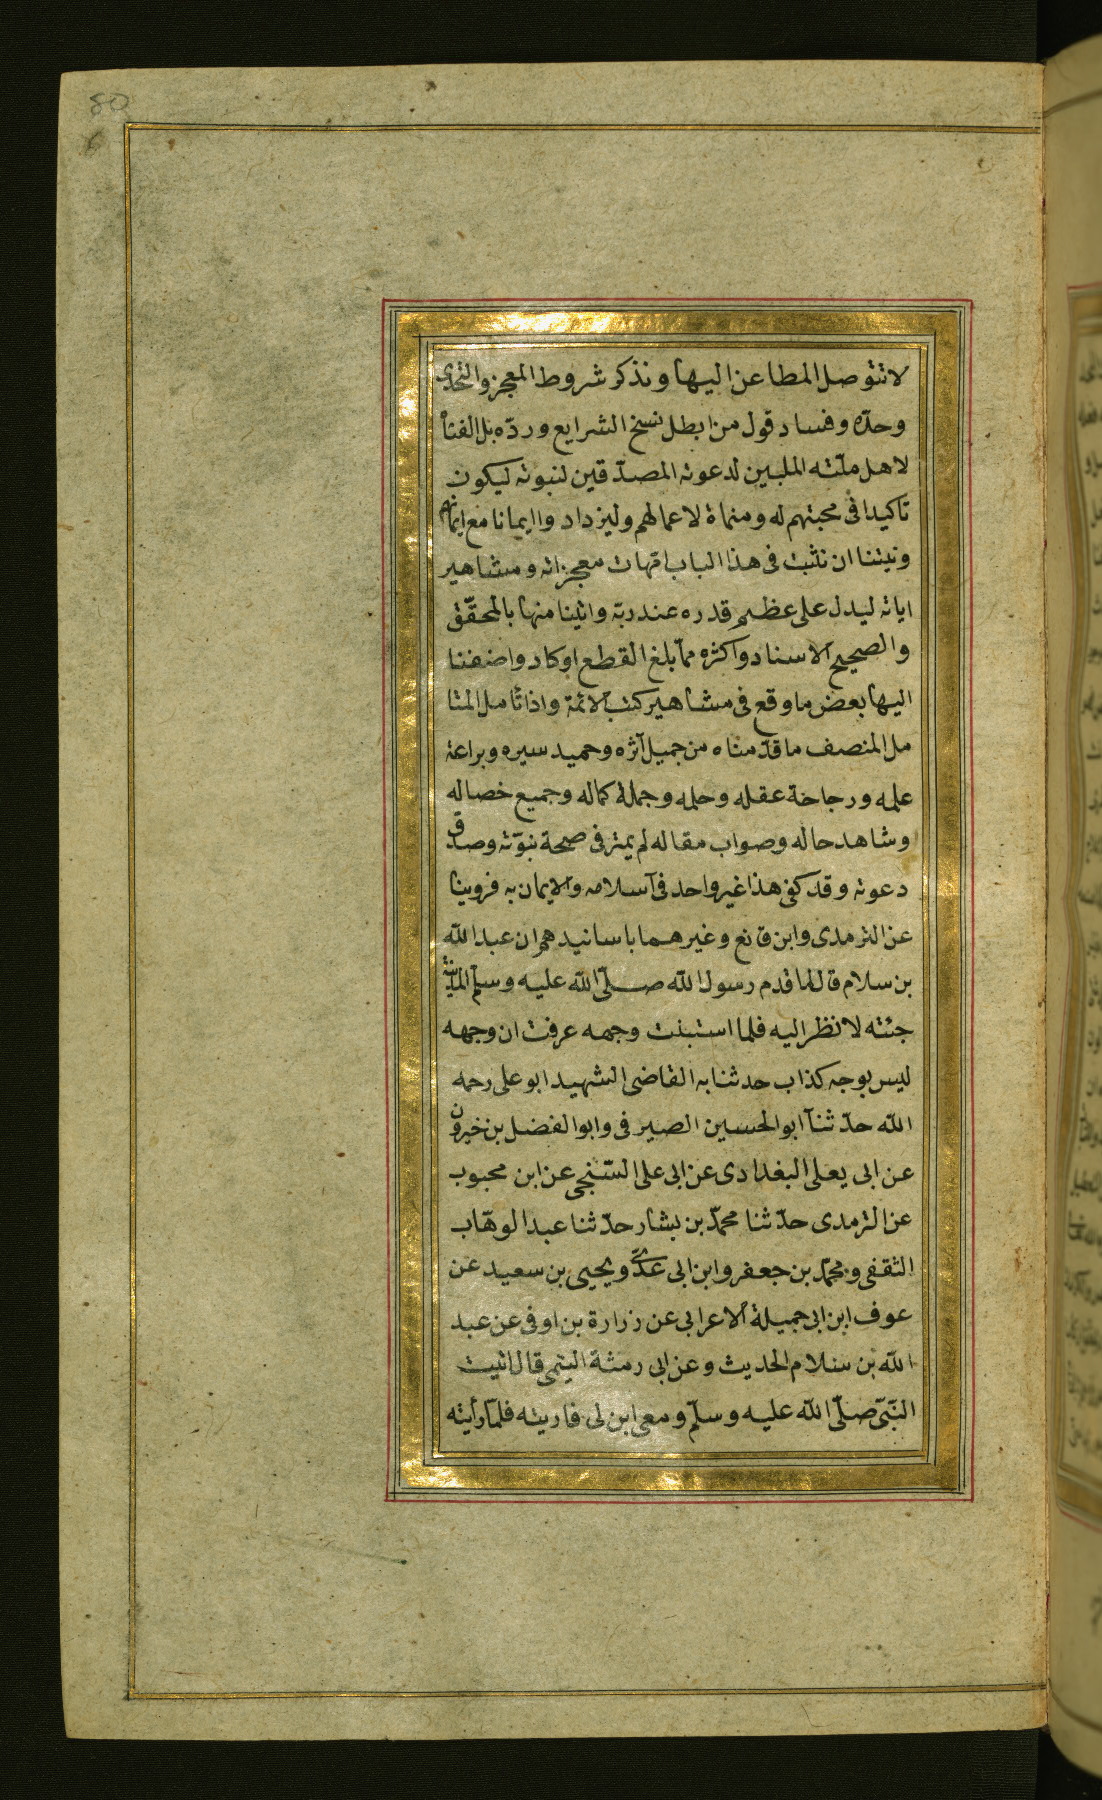 80
لا تتوصل المطاعن اليها ونذكر شروط المعجز والتحدى
وحده وفساد قول من ابطل نسخ الشرايع ورده بل الفناه
لاهل ملته الملبين لدعوته المصدقين لنبوته ليكون
تاكيدا فى محبتهم له ومنماة لاعمالهم وليزدادوا ايمانا مع ايمانهم
ونيتنا ان نثبت فى هذا الباب امهات معجزاته ومشاهير
اياته ليدل على عظيم قدره عند ربه واتينا منها بالمحقق
والصحيح الاسناد واكثره مما بلغ القطع اوكاد واضفنا
اليها بعض ما وقع فى مشاهير كتب الائمة واذا تامل المتا
مل المنصف ما قدمناه من جميل اثره وحميد سيره وبراعة
علمه ورجاحة عقله وحلمه وجملة كماله وجميع خصاله
وشاهد حاله وصواب مقاله لم يمتر فى صحة نبوته وصدق
دعوته وقد كفى هذا غير واحد فى اسلامه والايمان به فروينا
عن الترمدى وابن قانع وغيرهما باسانيدهم ان عبد الله
بن سلام قال لما قدم رسول الله صلى الله عليه وسلم المدينة
جئته لانظر اليه فلما استبنت وجهه عرفت ان وجهه
ليس بوجه كذاب حدثنا به القاضى الشهيد ابو على رحمه
الله حدثنا ابو الحسين الصيرفى وابو الفضل بن خيرون
عن ابى يعلى البغدادى عن ابى على السنجى عن ابن محبوب
عن الترمدى حدثنا محمد بن بشار حدثنا عبد الوهاب
الثقفى ومحمد بن جعفر وابن ابى عدى ويحيى بن سعيد عن
عوف ابن ابى جميلة الاعرابى عن زرارة بن اوفى عن عبد
الله بن سلام الحديث وعن ابى رمثة التيمى قال اتيت
النبى صلى الله عليه وسلم ومعى ابن لى فاريته فلما رأيته